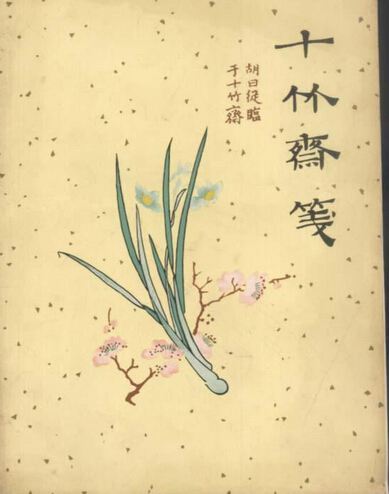 十竹齋笺
胡曰從臨
于十竹齋